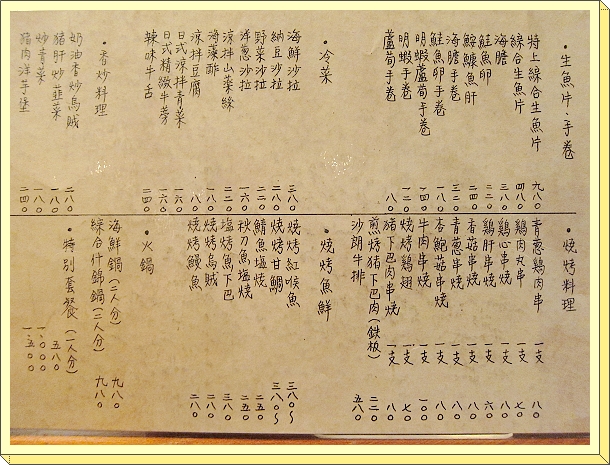 ・生魚片、手卷
特上綜合生魚片 九八〇
綜合生魚片 四八〇
海膽 三八〇
鮭魚卵 二二〇
鮟鱇魚肝 二四〇
海膽手卷 三二〇
鮭魚卵手卷 一八〇
明蝦蘆荀手卷 一四〇
明蝦手卷 一二〇
蘆荀手卷 八〇
・冷菜
海鮮沙拉 三八〇
納豆沙拉 二二〇
野菜沙拉 二八〇
洋蔥沙拉 一六〇
涼拌山藥絲 二二〇
海藻酢 一八〇
涼拌豆腐 一八〇
日式涼拌青菜 一六〇
日式精緻牛蒡 一六〇
辣味牛舌 二四〇
・香炒料理
奶油香炒烏賊 二八〇
豬肝炒韮菜 一八〇
炒青菜 一八〇
豬肉洋芋堡 二四〇
・燒烤料理
青蔥鷄肉串 一支 八〇
鷄肉丸串 一支 七〇
鷄心串燒 一支 八〇
鷄肝串燒 一支 六〇
香菇串燒 一支 八〇
青蔥串燒 一支 八〇
杏鮑菇串燒 一支 八〇
牛肉串燒 一支 一〇〇
燒烤鷄翅 一支 七〇
豬下巴肉串燒 一支 八〇
煎烤豬下巴肉(鉄板) 二二〇
沙朗牛排 五八〇
・燒烤魚鮮
燒烤紅喉魚 三八〇~
燒烤甘鯛 三八〇~
鯖魚塩燒 二五〇
秋刀魚塩燒 二五〇
塩烤魚下巴 三二〇
燒烤烏賊 二八〇
燒烤鰻魚 二八〇
・火鍋
海鮮鍋(二人分) 九八〇
綜合什錦鍋(三人分) 九八〇
・特別套餐(一人分)
五八〇
一、〇〇〇
一、五〇〇